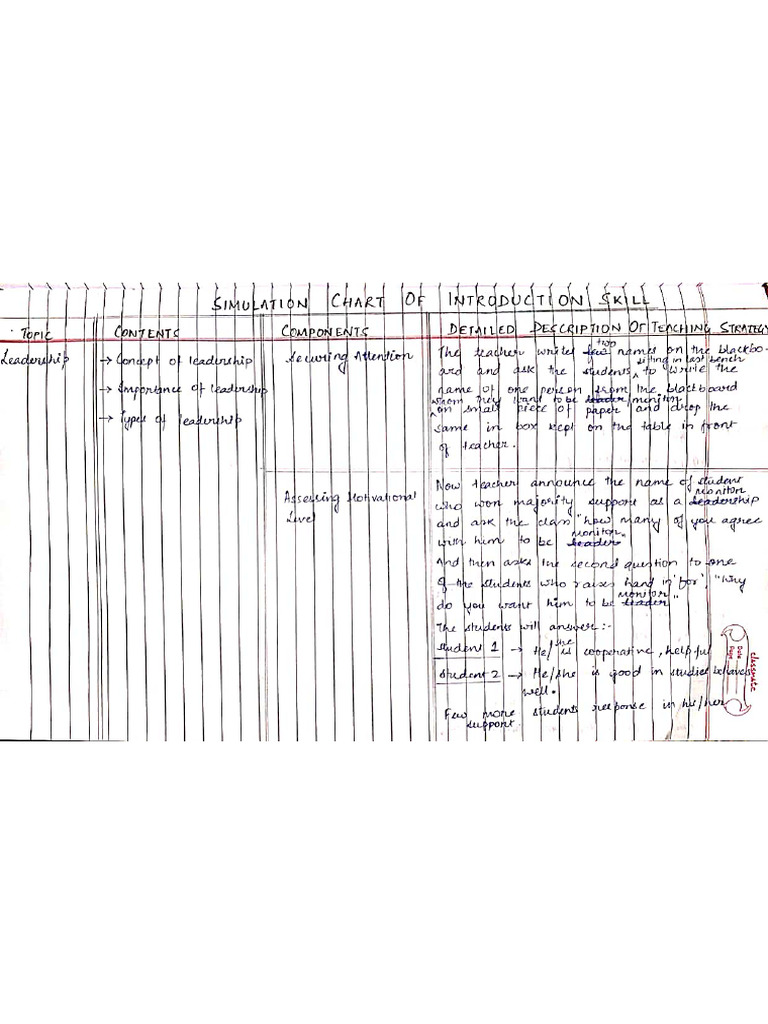 SIMULATION CHART OF INTRODUCTION SKILL
TOPIC
CONTENTS
COMPONENTS
DETAILED DESCRIPTION OF TEACHING STRATEGY
Leadership
→ Concept of leadership
→ Importance of leadership
→ Types of leadership
Securing Attention
two
The teacher writes few names on the blackbo-
sitting in last bench
ard and ask the students ^ to write the
name of one person from the blackboard
whom they want to be leader/monitor
^ on small piece of paper and drop the
same in box kept on the table in front
of teacher.
Assessing Motivational
Level
Now teacher announce the name of student
monitor
who won majority support as a leadership
and ask the class "how many of you agree
monitor"
with him to be leader
And then asks the second question to one
of the students who raises hand in 'for', "Why
monitor
do you want him to be leader"
The students will answer:-
she
Student 1 → He/is cooperative, helpful
Student 2 → He/she is good in studies behaves
well.
Few more students response in his/her
support.
classmate
Date
Page